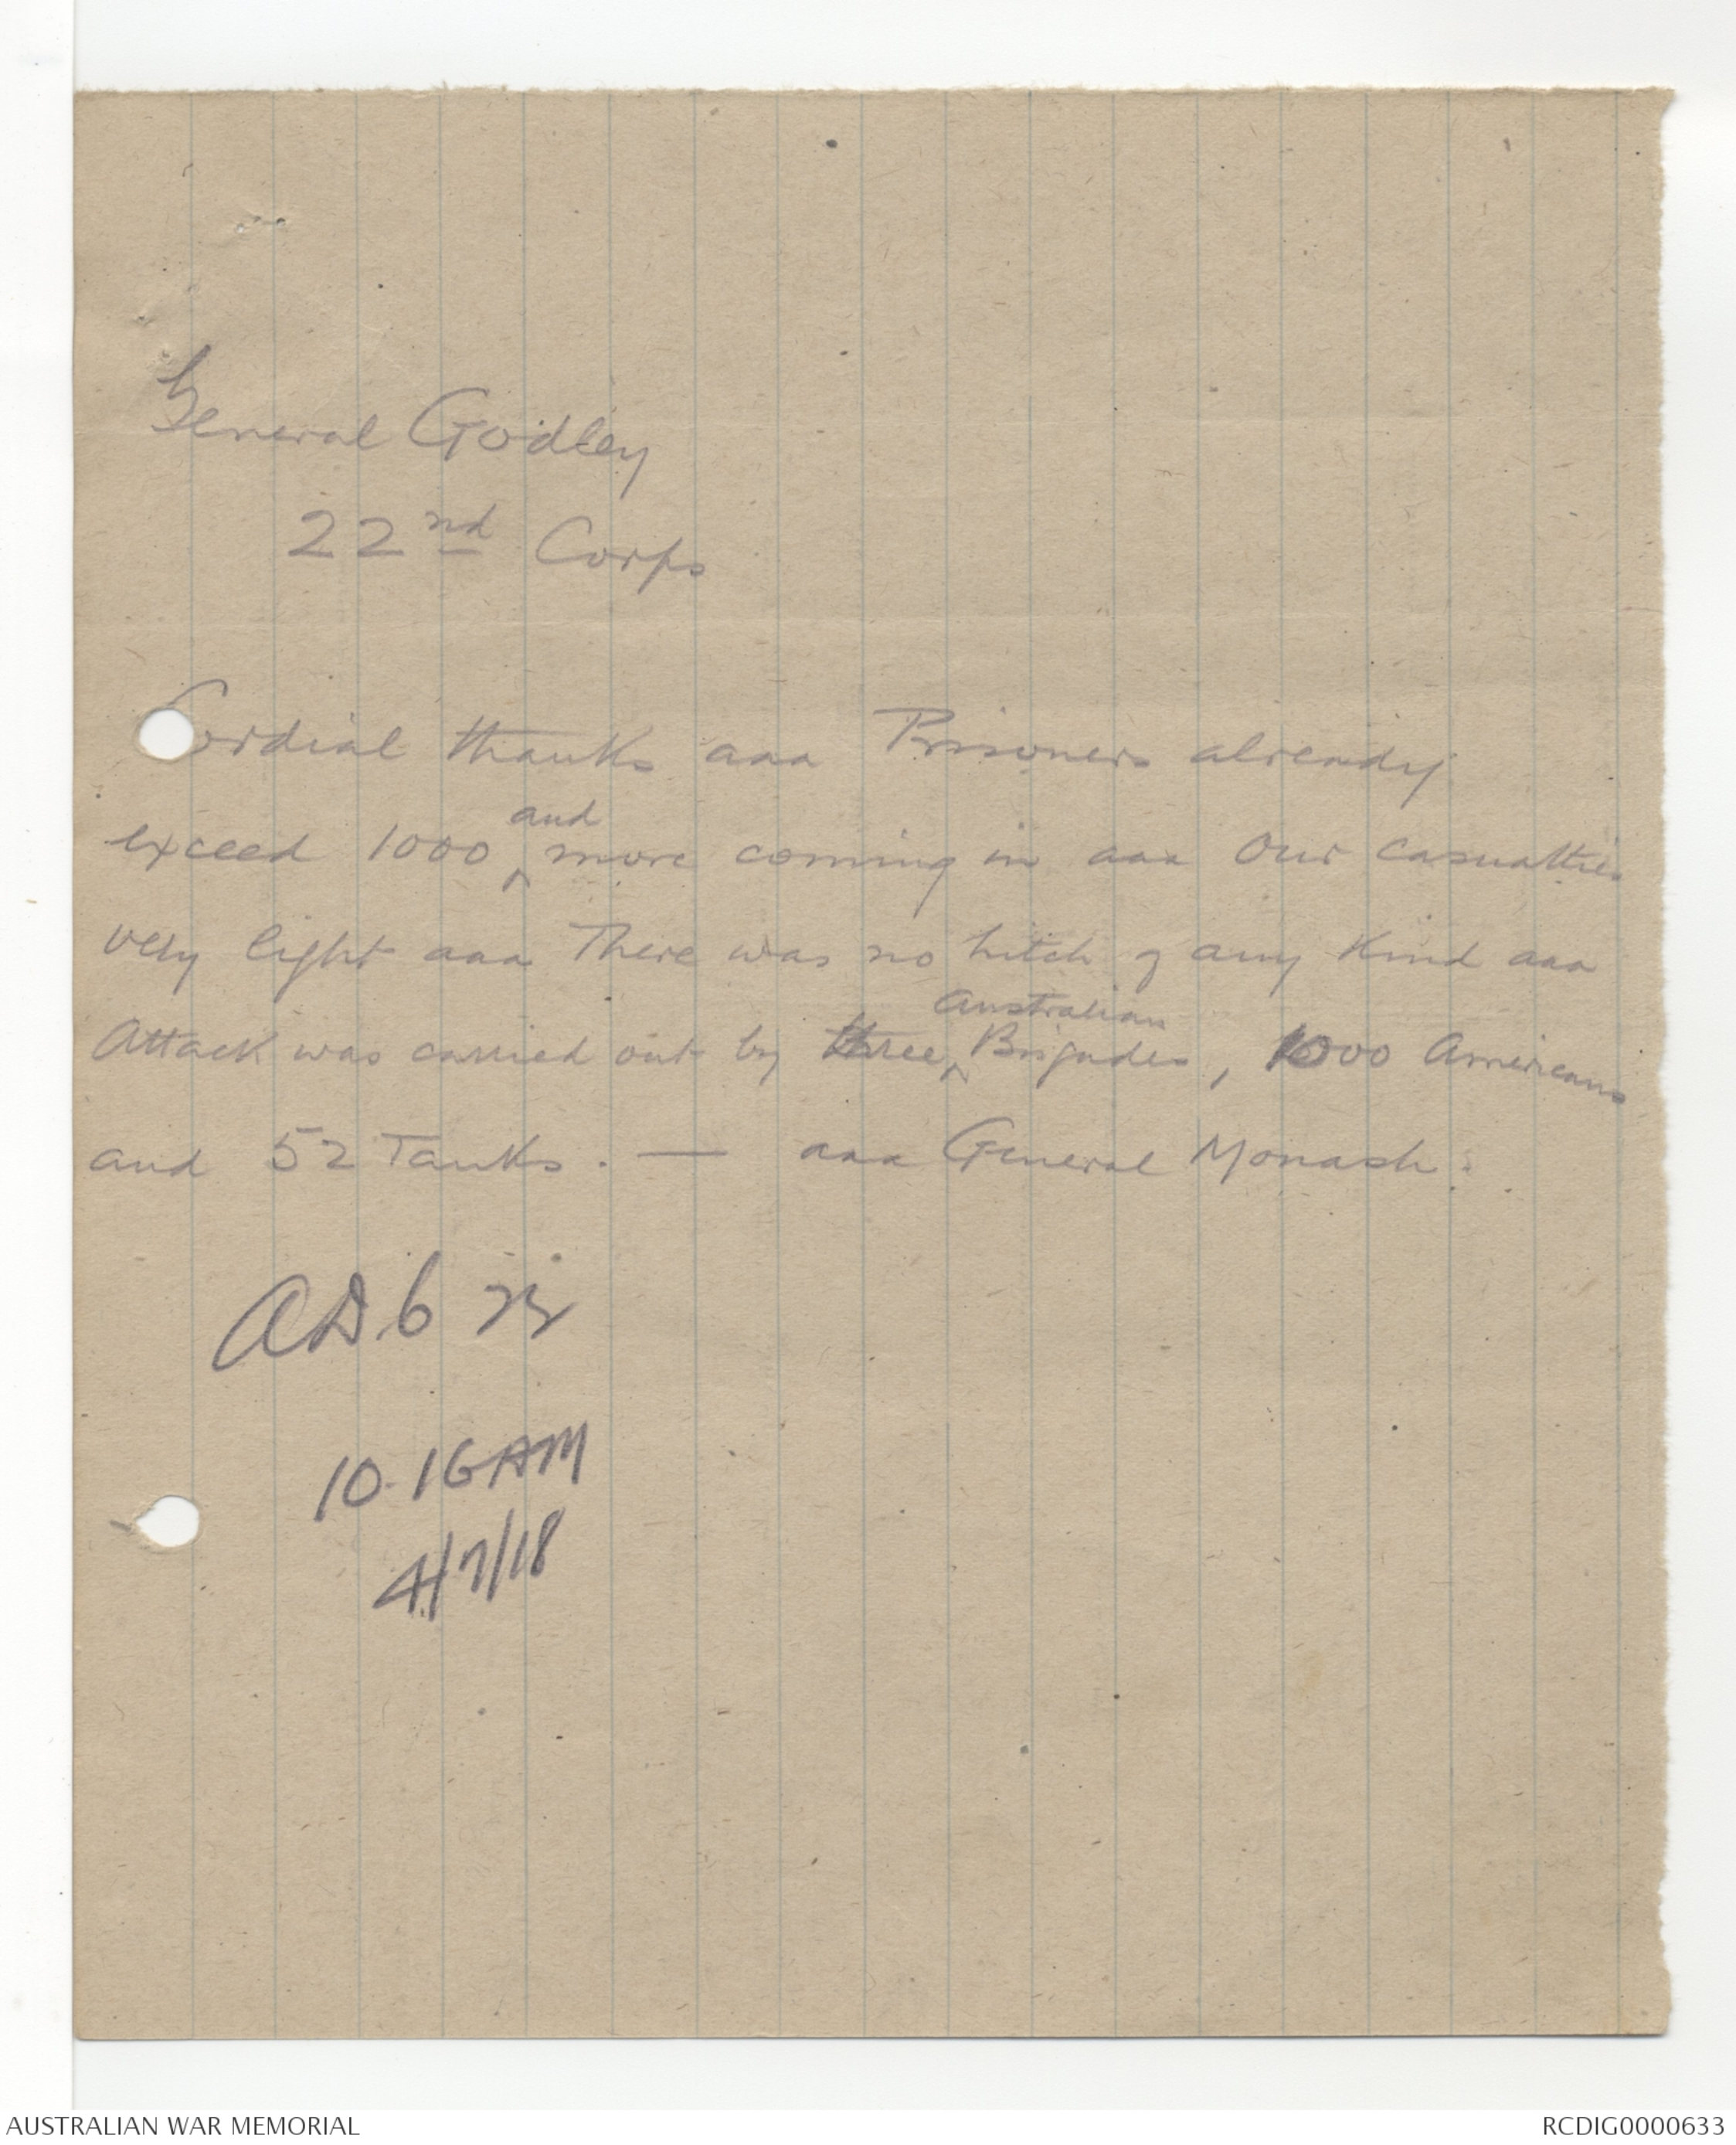 General Godley
22nd Corps
Cordial thanks aaa Prisoners already
exceed 1000 and more coming in aaa Our casualties
very light aaa There was no hitch of any kind aaa
Attack was carried out by three Australian Brigades, 1000 Americans
and 52 Tanks. — aaa General Monash.
10.16AM
4/7/18
AUSTRALIAN WAR MEMORIAL
RCDIG0000633